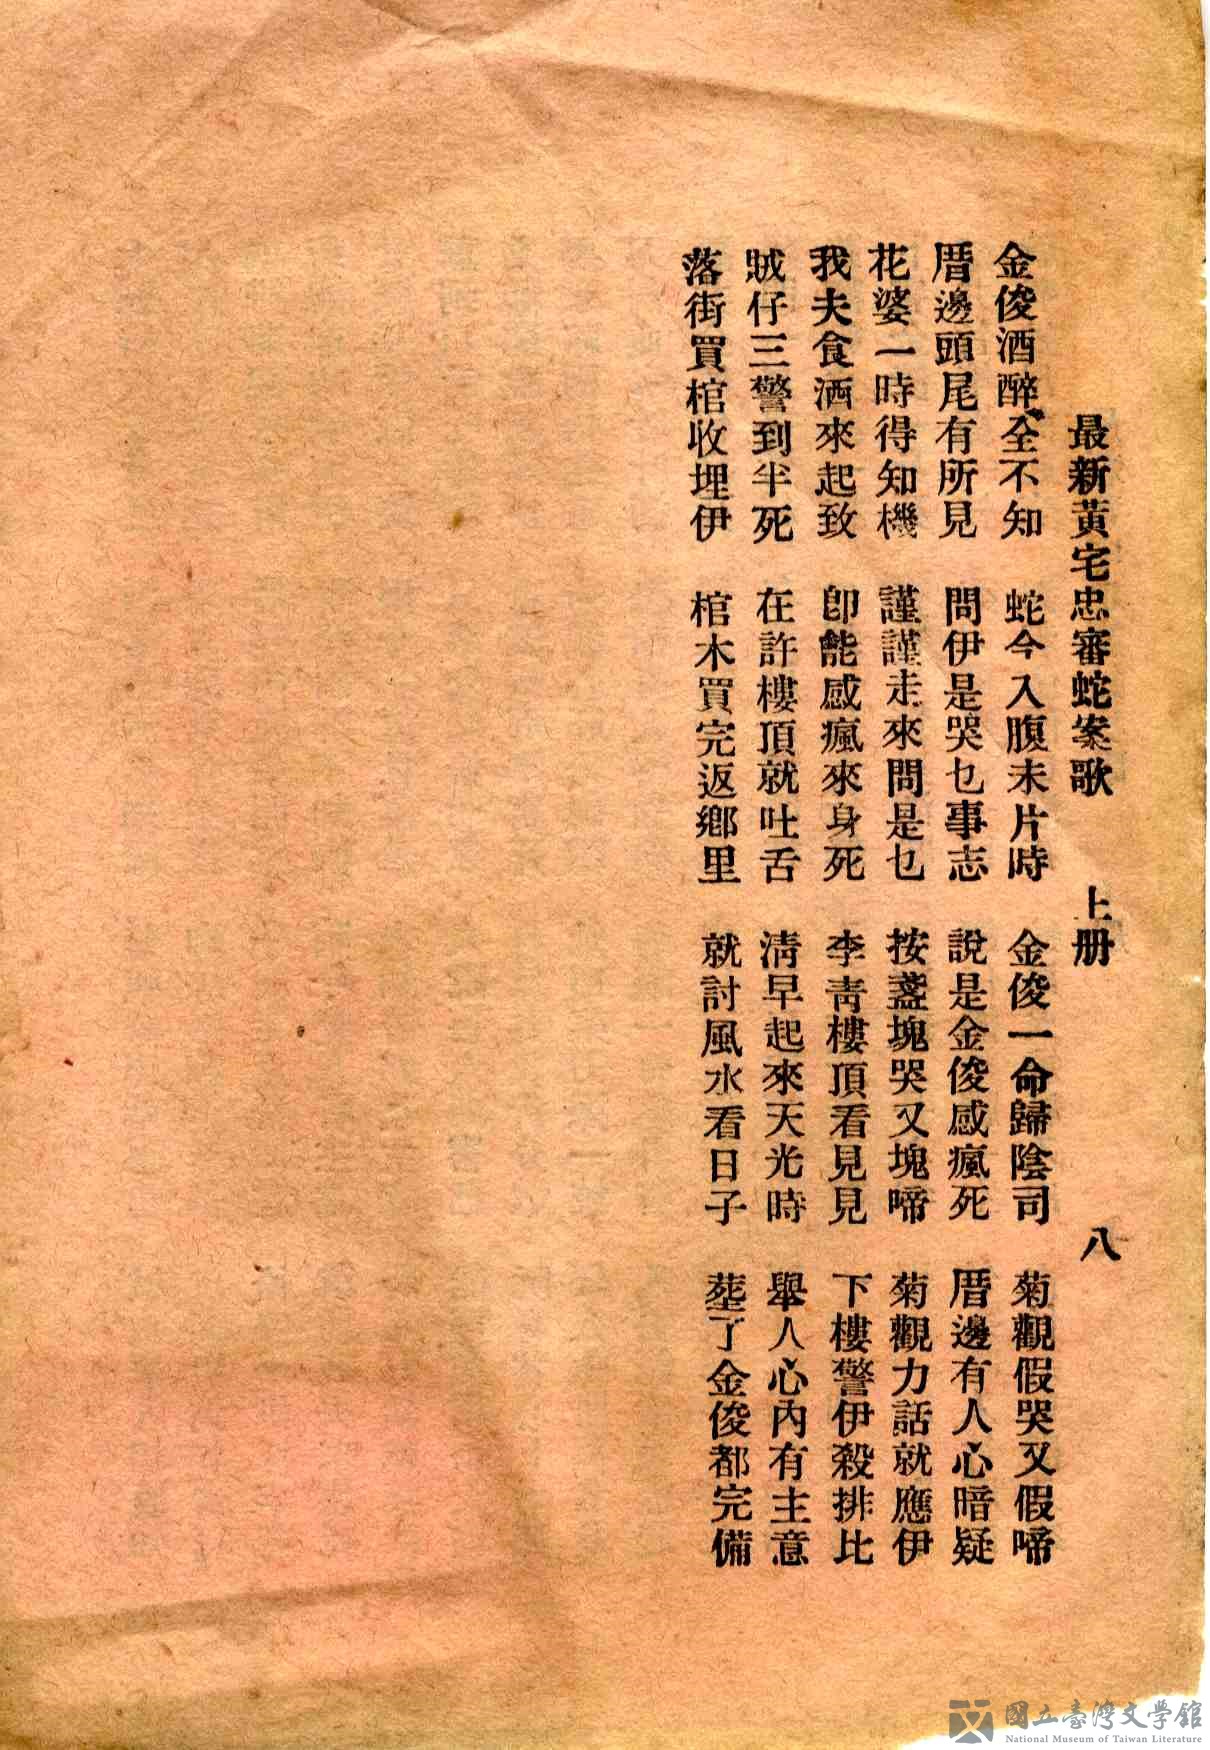 最新黃宅忠審蛇案歌 上册 八
金俊酒醉全不知 蛇今入腹未片時 金俊一命歸陰司 菊觀假哭又假啼
厝邊頭尾有所見 問伊是哭乜事志 說是金俊感瘋死 厝邊有人心暗疑
花婆一時得知機 謹謹走來問是乜 按盞塊哭又塊啼 菊觀力話就應伊
我夫食酒來起致 卽能感瘋來身死 李靑樓頂看見見 下樓警伊殺排比
賊仔三警到半死 在許樓頂就吐舌 淸早起來天光時 舉人心內有主意
落街買棺收埋伊 棺木買完返鄉里 就討風水看日子 塟了金俊都完備
國立臺灣文學館
National Museum of Taiwan Literature